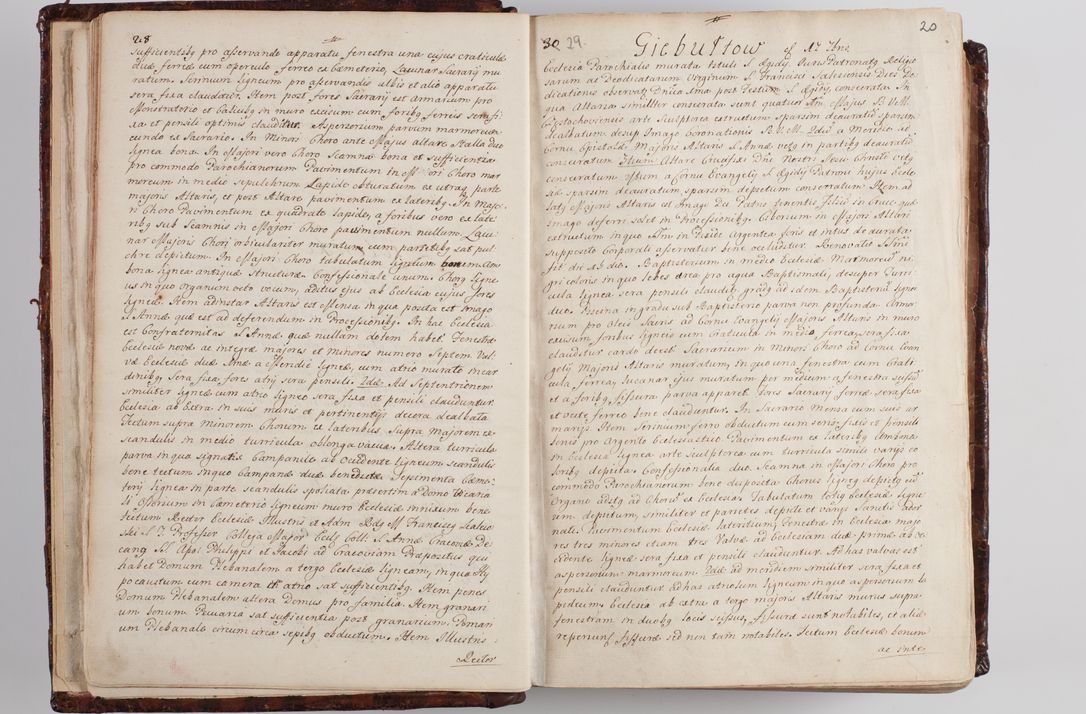 28
sufficientibg pro asservando apparatu, fenestra una cujus craticulæ
duæ ferreæ cum operculo ferreo ex Cæmeterio, Laqunar Sacrarij mu
ratum. Scrinium ligneum pro asservandis albis et alio apparatu
sera fixa clauditur. Item post fores Sacrarij est armarium pro
Monstratorio et Calicibg in muro excisum cum foribg ferreis sera fi
xa et pensili optimis clauditur. Aspersorium parvum marmoreum
eundo ex Sacrario. In Minori Choro ante Majus altare Stalla duo
lignea bona. In Majori vero Choro Scamna bona et sufficientia
pro commodo Parochianorum Pavimentum in Minori Choro mar
moreum in medio sepulchrum Lapide obturatum ex utraq parte
majoris Altaris, et post Altare pavimentum ex lateribg. In Majo
ri Choro Pavimentum ex quadrato lapide, a foribus vero ex late
ribg sub Scamnis in Majori Choro pavimentum nullum. Laqu
nar Majoris Chori orbiculariter muratum cum parietibg sat pul
chre depictum. In Majori Choro tabulatum ligneum
bona lignea antiquæ Structuræ. Confessionale unum. Chorg ligne
us in quo Organum octo vocum, aditus ejus ab Ecclesia cujus fores
ligneæ. Item adinstar Altaris est Mensa in qua posita est Imago
S. Annæ quæ est ad deferendum in Processionibg. In hac Ecclesia
est Confraternitas S. Annæ quæ nullam dotem habet. Fenestræ
Ecclesiæ novæ ac integræ majores et minores numero Septem. Val
væ Ecclesiæ duæ. Unæ a Meridie ligneæ, cum atrio murato in car
dinibg Sera fixa, fores atrij sera pensili. 2dæ Ad Septentrionem
similiter ligneæ cum atrio ligneo sera fixa et pensili clauduntur.
Ecclesia ab Extra in suis muris et pertinentijs decora dealbata
Tectum supra Minorem Chorum ex lateribus Supra Majorem ex
scandulis in medio turricula oblonga vacua. Altera turricula
parva in qua signatis Campanile ab Occidente ligneum scandulis
bene tectum in quo Campanæ duæ benedictæ Sepimenta Cæme-
terij lignea in parte scandulis spoliata præsertim a Domo Vicaria
li Ossorium in Cæmeterio ligneum muro Ecclesiæ innixum bene
tectum. Rector Ecclesiæ Illustris et Adm Rdg M Franciscg
ski S. T. Professor Collega Major Ecclg Coll. S. Annæ Cracoviæ De
cang SS. Apost. Philippi et Jacobi ad Cracoviam Præpositus qui
habet Domum Plebanalem a tergo Ecclesiæ ligneam, in qua Hy
pocaustum cum camera et atrio sat sufficientibg. Item penes
Domum Plebanalem altera Domus pro familia. Item granari
um bonum. Pecuaria sat sufficientia post granarium. Pomari
um Plebanale circum circa sepibg obductum. Item Illustris
Rector
20
30 29.
Giebułtow
Ecclesia Parochialis murata tituli S. Ægidij Juris Patronatg Religio
sarum ac Deodicatarum Virginum S. Francisci Salesiensis Dies De
dicationis observatg Dnica 1ma post Festum S. Ægidij consecrata. In
qua Altaria similiter consecrata sunt quatuor 1m Majus B. V. M.
Częstochoviensis arte Sculptoria extructum sparsim deauratum sparsim
dealbatum desup Imago Coronationis B. V. M. 2dum a Meridie ad
Cornu Epistolæ Majoris Altaris S. Annæ vetg in partibg deauratum
consecratum 3tium Altare Crucifixæ Dni Nostri Jesu Christi vetg
consecratum 4tum a Cornu Evangelij S. Ægidij Patroni hujus Eccle
siæ sparsim deauratum sparsim depictum consecratum Item ad
latg Majoris Altaris est Imago Dei Patris tenentis filium in Cruce quæ
imago deferri solet in Processionibg. Ciborium in Majori Altari
extructum in quo Ssm in Pixide Argentea foris et intus deaurata
supposito Corporali asservatur bene occluditur. Renovatio Ssmi
fit die ab die. Baptisterium in medio Ecclesiæ Marmoreum ni
gri coloris in quo lebes ærea pro aqua Baptismali, desuper Turri
cula lignea sera pensili claudit, gradg ad idem Baptisterium lignei
duo. Piscina in gradu sub Baptisterio parva non profunda. Arma
rium pro Oleis Sacris ad Cornu Evangelij Majoris Altaris in muro
excisum, foribus ligneis cum Craticula in medio ferrea, sera fixa
clauditur cardo deest. Sacrarium in Minori Choro ad Cornu Evan
gelij Majoris Altaris muratum, in quo una fenestra cum Crati
cula ferrea, Lucanar ejus muratum per medium a fenestra
et a foribg fissura parva apparet. Fores Sacrarij ferreæ sera fixa
et vecte ferreo bene clauduntur. In Sacrario Mensa cum suis ar
marijs. Item Scrinium ferro obductum cum seris fixis et pensili
seris pro Argento Ecclesiastico Pavimentum ex lateribg Ambona
in Ecclesia lignea arte sculptorea cum turricula simili varijs co
loribg depicta. Confessionalia duo. Scamna in Majori Choro pro
commodo Parochianorum bene disposita Chorus ligneg depictg cum
Organo aditg ad Chorum ex Ecclesia. Tabulatum totig Ecclesiæ ligne
um depictum, similiter et parietes depicti et varijs Sanctis ador
nati. Pavimentum Ecclesiæ lateritium, Fenestræ in Ecclesia majo
res tres minores etiam tres Valvæ ad Ecclesiam duæ primæ ab oc
cidente ligneæ sera fixa et pensili clauduntur. Ad has valvas est
aspersorium marmoreum. 2dæ ad meridiem similiter sera fixa et
pensili clauduntur ad has atriolum ligneum in quo aspersorium la
pideum. Ecclesia ab extra a tergo majoris Altaris murus supra
fenestram in duobg locis scissus, fissuræ sunt notabiles, et aliæ
reperiunt fissuræ sed non tam notabiles. Tectum Ecclesiæ bonum
ac inte